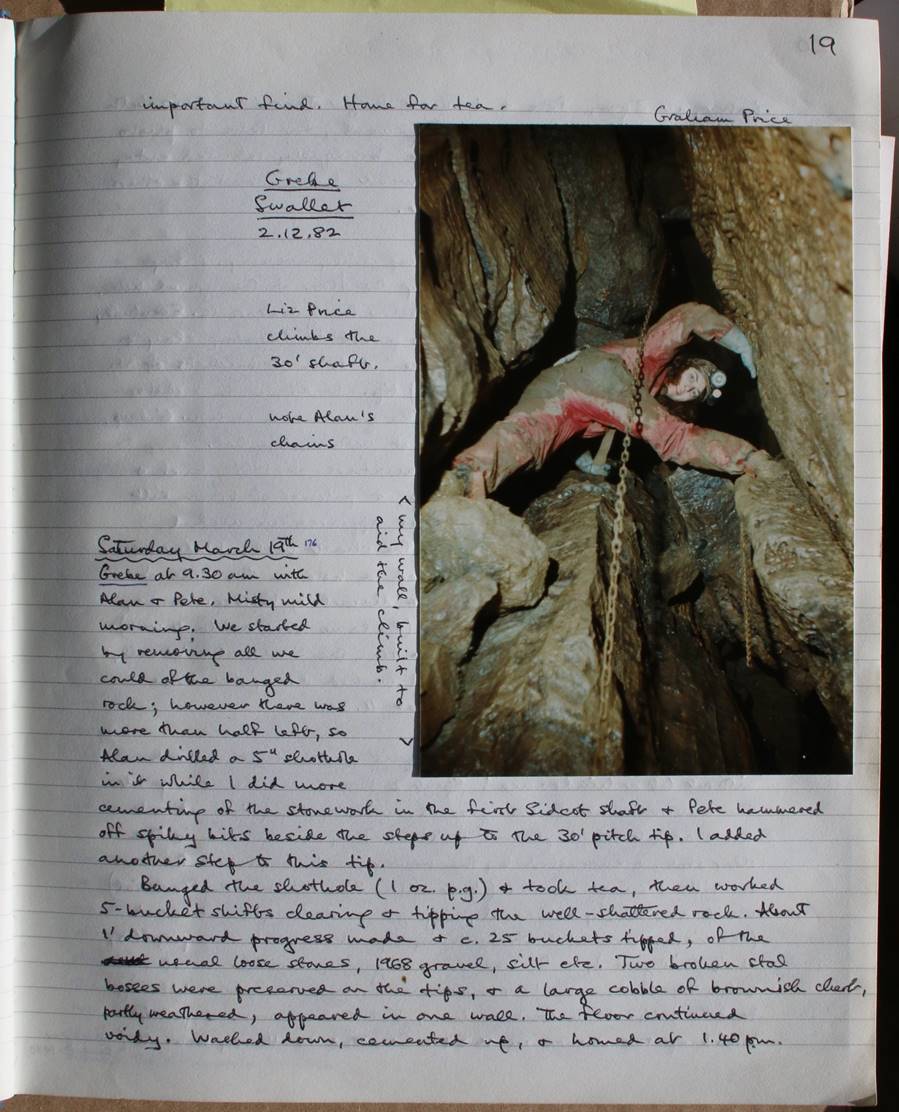 19
important find. Home for tea.
Graham Price
Grebe
Swallet
2.12.82
Liz Price
climbs the
30' shaft.
note Alan's
chains
< my wall, built to >
aid the climb.
Saturday March 19th 176
Grebe at 9.30 am with
Alan & Pete. Misty mild
morning. We started
by removing all we
could of the banged
rock; however there was
more than half left, so
Alan drilled a 5" shothole
in it while I did more
cementing of the stonework in the first Sidcot shaft & Pete hammered
off spiky bits beside the steps up to the 30' pitch tip. I added
another step to this tip.
Banged the shothole (1 oz. p.g.) & took tea, then worked
5-bucket shifts clearing & tipping the well-shattered rock. About
1' downward progress made & c. 25 buckets tipped, of the
usual loose stones, 1968 gravel, silt etc. Two broken stal
bosses were preserved on the tips, & a large cobble of brownish chert,
partly weathered, appeared in one wall. The floor continued
voidy. Washed down, cemented up, & homed at 1.40 pm.